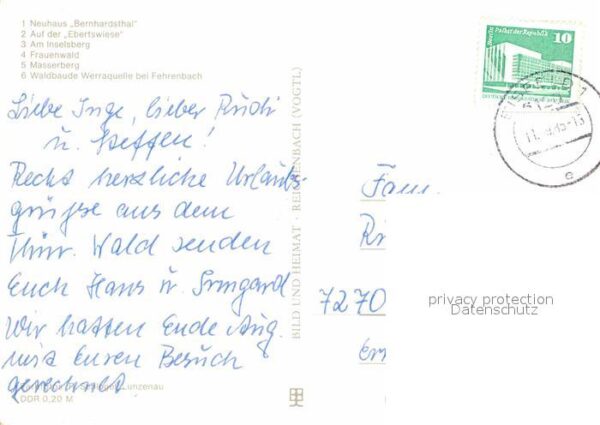 1 Neuhaus „Bernhardsthal"
2 Auf der „Ebertswiese"
3 Am Inselsberg
4 Frauenwald
5 Masserberg
6 Waldbaude Werraquelle bei Fehrenbach
Liebe Inge, lieber Rudi
u. Steffen!
Recht herzliche Urlaubs-
grüße aus dem
Thür. Wald senden
Euch Hans u. Irmgard
Wir hatten Ende Aug.
mit Euren Besuch
gerechnet.
Lunzenau
DDR 0,20 M
BILD UND HEIMAT · REICHENBACH (VOGTL)
Berlin, Palast der Republik
10
Fam.
7270
privacy protection
Datenschutz